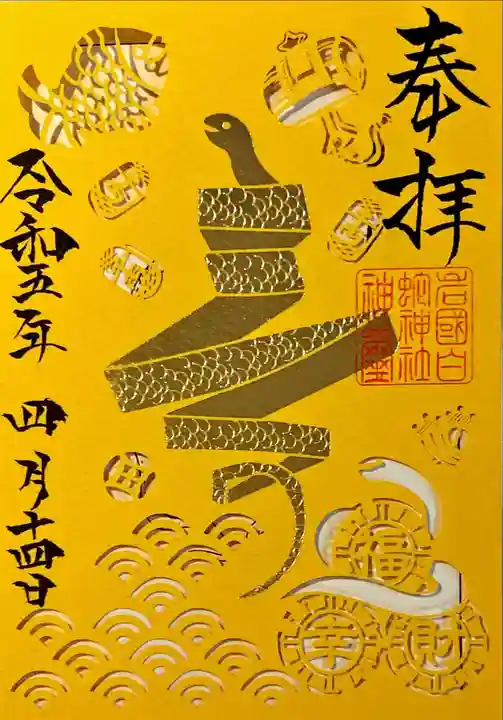 奉拝
岩國白
蛇神社
神璽
令和五年 四月十四日
福
幸
財